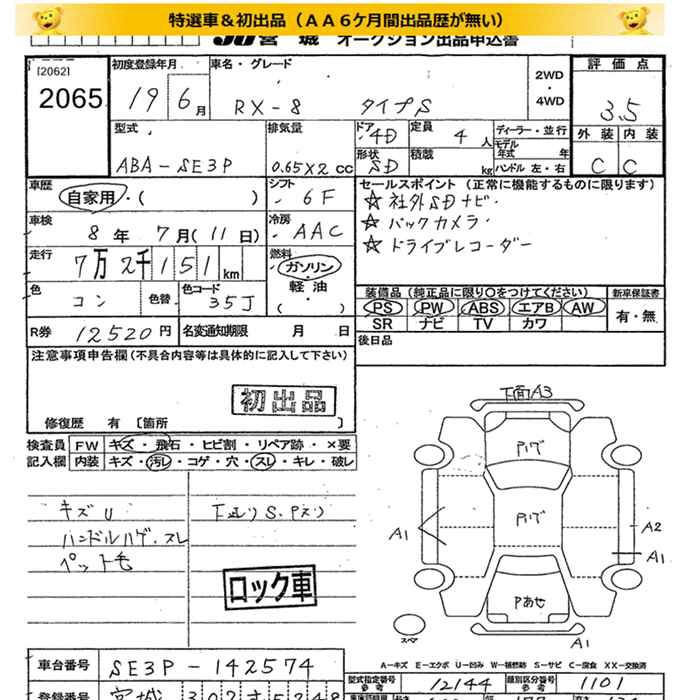 特選車&初出品(AA6ケ月間出品歴が無い)
JU宮城 オークション出品申込書
[2062]
2065
初度登録年月
19 6月
車名・グレード
RX-8 タイプS
2WD
・
4WD
評価点
3.5
外装 内装
C C
型式
ABA-SE3P
排気量
0.65×2 CC
ドア
4D
定員
4人
形状
SD
積載
kg
ディーラー・並行
モデル年式 年
ハンドル 左・右
車歴
自家用・( )
シフト
6F
セールスポイント(正常に機能するものに限ります)
☆社外SDナビ・
☆バックカメラ・
☆ドライブレコーダー
車検
8年 7月(11日)
冷房
AAC
走行
7万2千151km
燃料
ガソリン
軽油
( )
色
コン
色替
色コード
35J
装備品(純正品に限り○をつけてください)
PS PW ABS エアB AW
SR ナビ TV カワ
新車保証書
有・無
R券 12520円
名変通知期限 月 日
後日品
注意事項申告欄(不具合内容等は具体的に記入して下さい)
初出品
修復歴 有〔箇所 〕
検査員記入欄
FW キズ・飛石・ヒビ割・リペア跡・×要
内装 キズ・汚レ・コゲ・穴・スレ・キレ・破レ
キズU
ハンドルハゲ、スレ
ペット毛
ロック車
下面A3
Pハゲ
Pハゲ
Pあせ
A1
A2
A1
A1
スペア
A−キズ E−エクボ U−凹み W−補修跡 S−サビ C−腐食 XX−交換済
車台番号
SE3P-142574
型式指定番号
参考
12144
類別区分番号
参考
1101
登録番号
宮城 302 す 5248